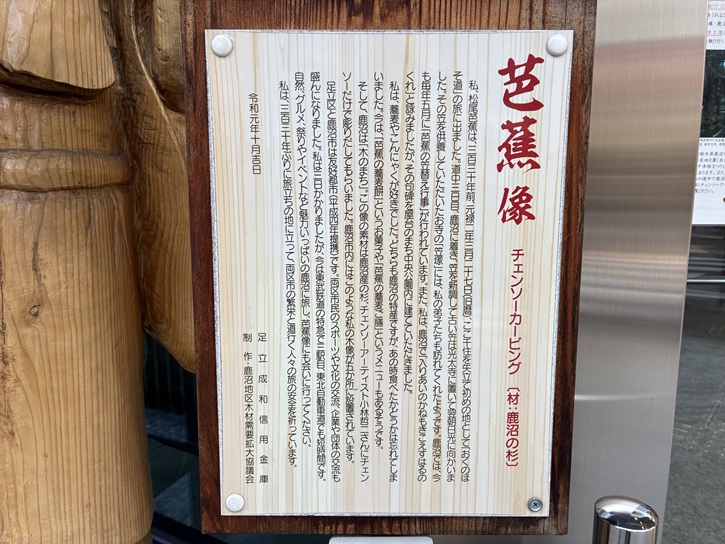 芭蕉像 チェンソーカービング 〔材:鹿沼の杉〕
私、松尾芭蕉は、三百三十年前、元禄二年三月二十七日(旧暦)、ここ千住を矢立て初めの地として「おくのほ
そ道」の旅に出ました。道中三日目、鹿沼に着き、笠を新調して古い笠は光太寺に置いて翌朝日光に向かいま
した。その笠を供養していただいたお寺の「笠塚」には、私の弟子たちも訪れてくれたようです。鹿沼では、今
も毎年五月に「芭蕉の笠替え行事」が行われています。また、私は、鹿沼で「入りあいのかねもきこえすはるの
くれ」と詠みましたが、その句碑を屋台のまち中央公園内に建てていただきました。
私は、蕎麦やこんにゃくが好きでした。どちらも鹿沼の特産ですが、あの時食べたかどうかは忘れてしま
いました。今は、「芭蕉の蕎麦餅」というお菓子や「芭蕉の蕎麦膳」というメニューもあるそうです。
そして、鹿沼は「木のまち」。この像の素材は鹿沼産の杉、チェンソーアーティスト小林哲二さんにチェン
ソーだけで彫りだしてもらいました。鹿沼市内にはこのような私の木像が五か所に設置されています。
足立区と鹿沼市は友好都市(平成四年提携)です。両区市民のスポーツや文化の交流、企業や団体の交流も
盛んになりました。私は三日かかりましたが、今は東武鉄道の特急で三駅目、東北自動車道でも一時間です。
自然、グルメ、祭りやイベントなど魅力いっぱいの鹿沼に旅し、芭蕉像にも会いに行ってください。
私は、三百三十年ぶりに旅立ちの地に立って、両区市の繁栄と道行く人々の旅の安全を祈っています。
令和元年十月吉日
足立成和信用金庫
制作・鹿沼地区木材需要拡大協議会